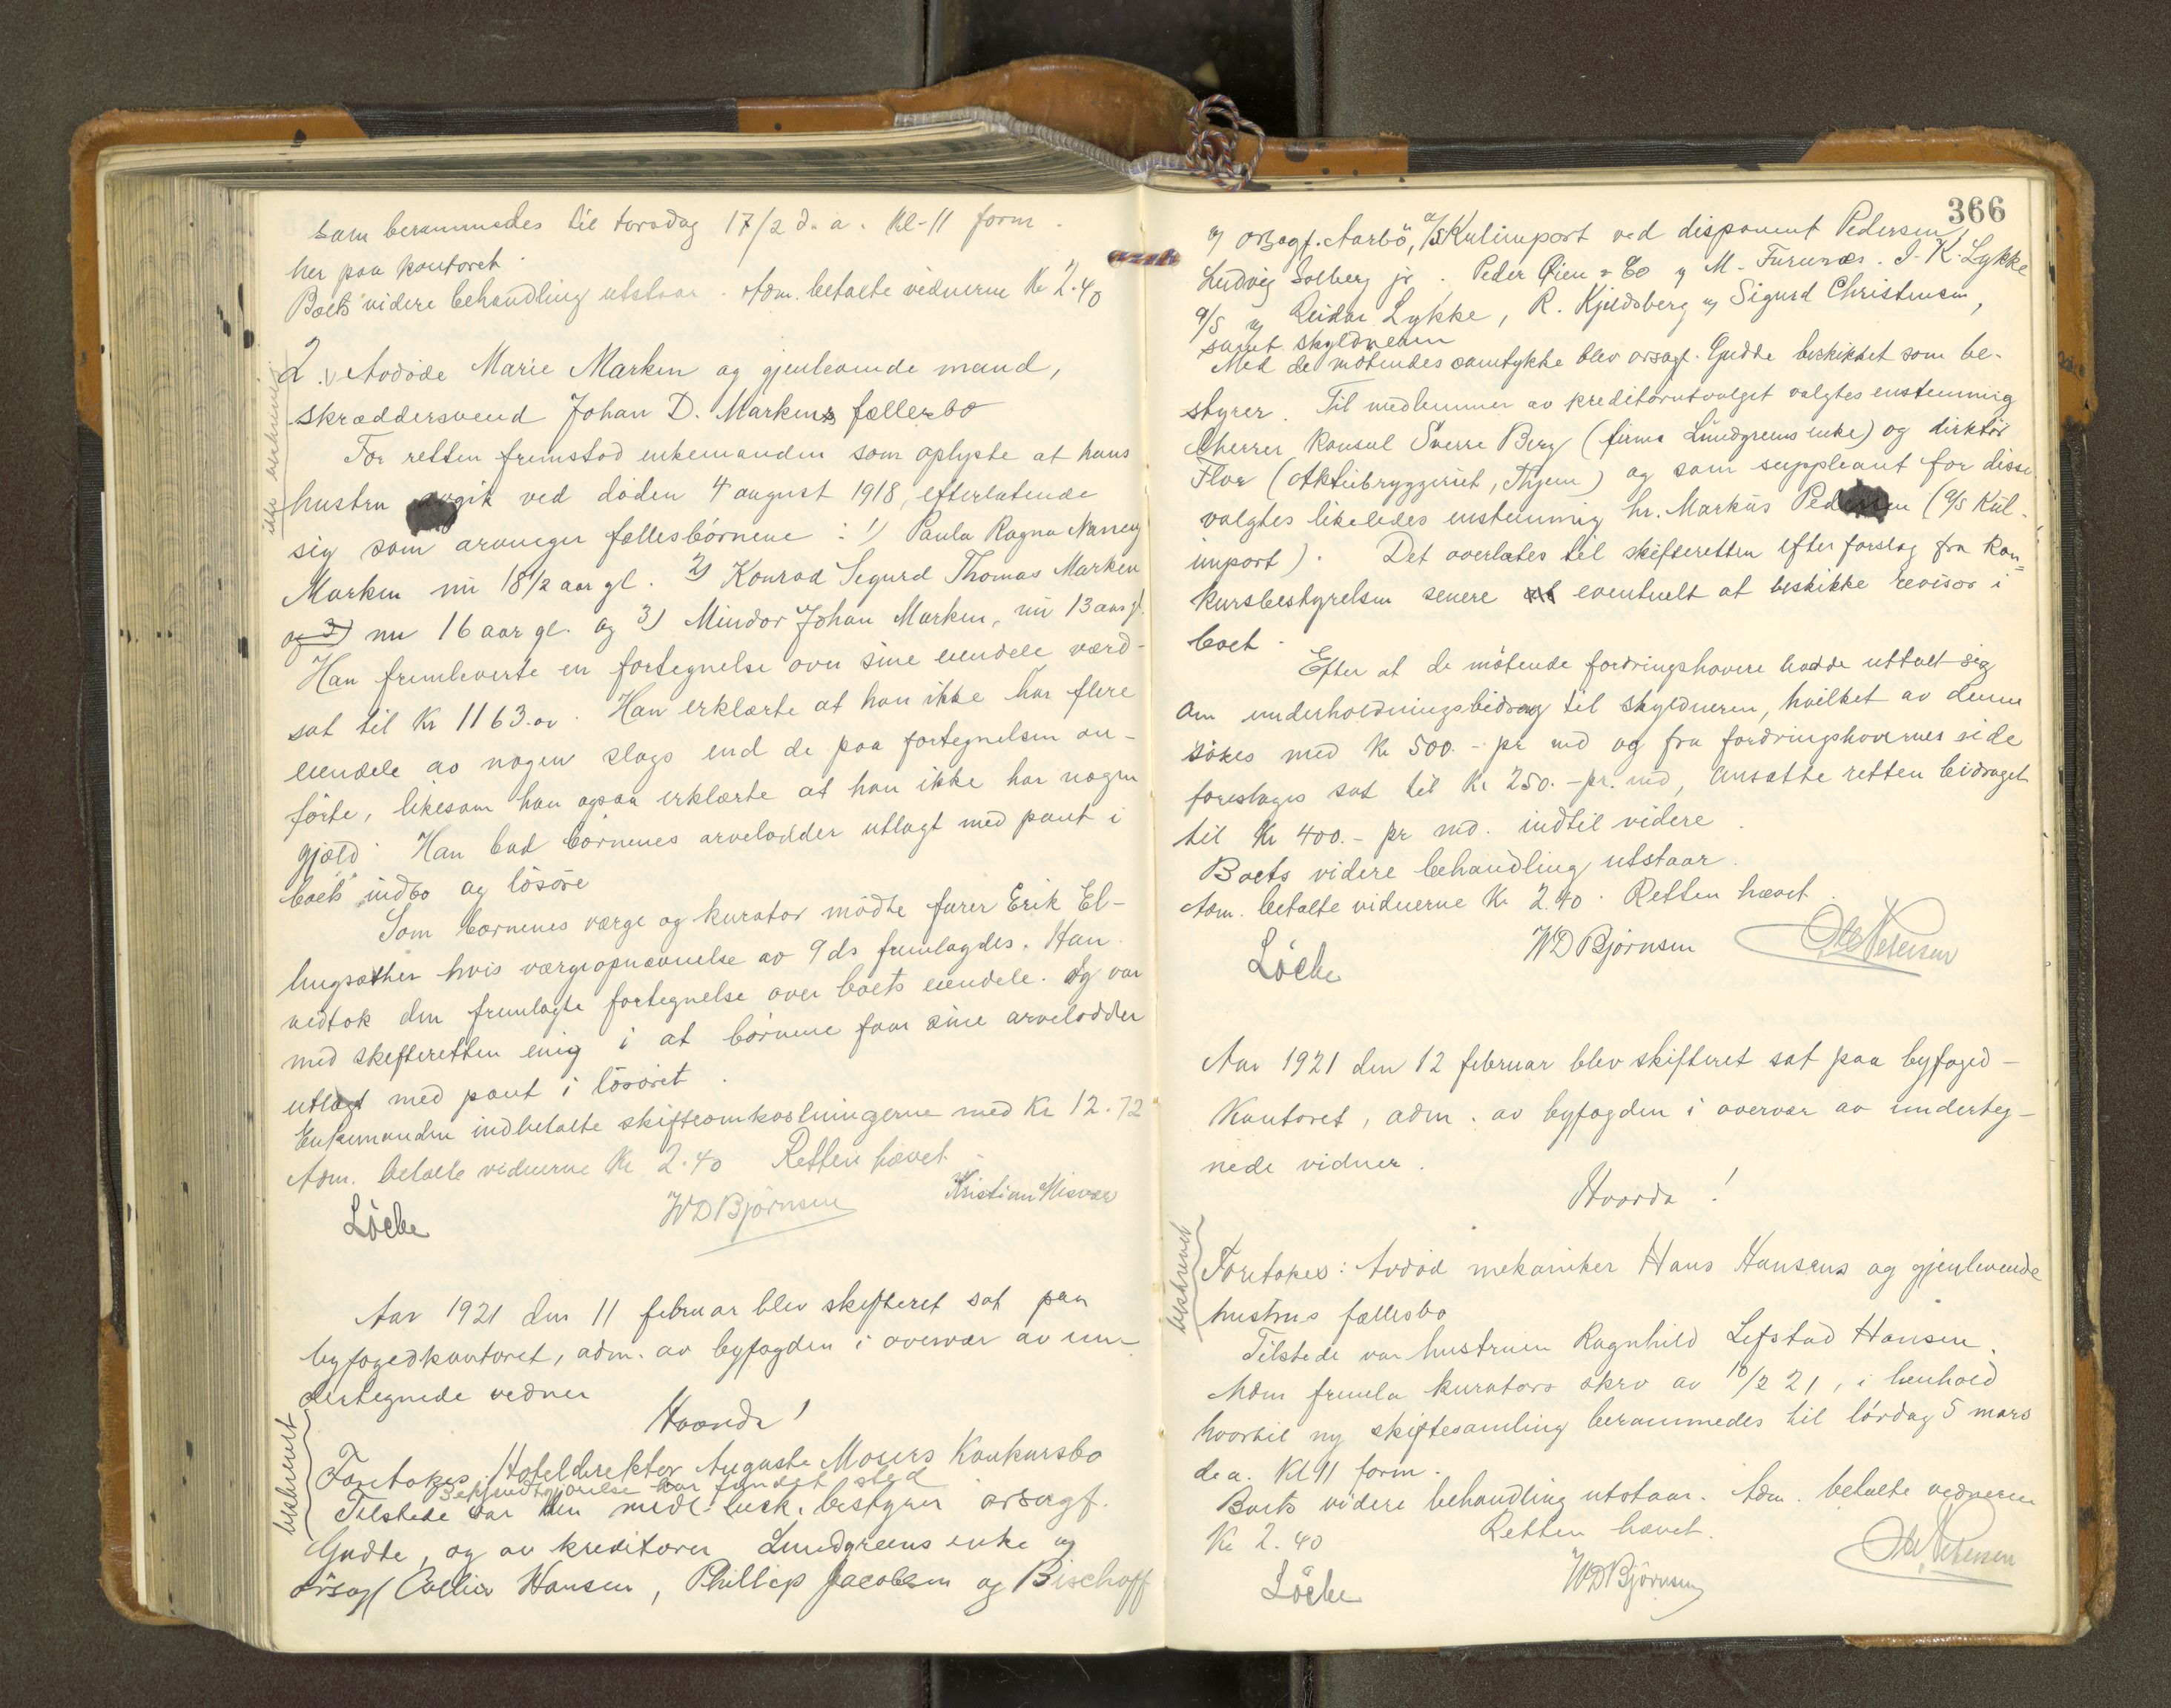 som berammedes til torsdag 17/2 d. a. Kl. 11 form.
her paa kontoret.
Boets videre behandling utstaar. Adm. betalte vidnerne Kr 2.40
ikke beskrevet
2. Avdøde Marie Marken og gjenlevende mand,
skræddersvend Johan D. Markens fællesbo
For retten fremstod enkemanden som oplyste at hans
hustru avgik ved døden 4 august 1918, efterlatende
sig som arvinger fællesbørnene: 1) Paula Ragna Nancy
Marken nu 18 1/2 aar gl. 2) Konrad Sigurd Thomas Marken
og 3) nu 16 aar gl. og 3) Mindor Johan Marken, nu 13 aar gl.
Han fremleverte en fortegnelse over sine eiendele værd-
sat til Kr 1163.00. Han erklærte at han ikke har flere
eiendele av nogen slags end de paa fortegnelsen an-
førte, likesom han ogsaa erklærte at han ikke har nogen
gjæld. Han bad børnenes arvelodder utlagt med pant i
boets indbo og løsøre
Som børnenes værge og kurator mødte furer Erik El-
lingsæther hvis værgeopnævnelse av 9 ds fremlagdes. Han
vedtok den fremlagte fortegnelse over boets eiendele. Og var
med skifteretten enig i at børnene faar sine arvelodder
utlagt med pant i løsøret.
Enkemanden indbetalte skifteomkostningerne med Kr 12.72
Adm. betalte vidnerne Kr 2.40 Retten hævet.
Löche WD Bjørnsen Kristian
Aar 1921 den 11 februar blev skifteret sat paa
byfogedkontoret, adm. av byfogden i overvær av un-
dertegnede vidner
Hvorda!
beskrevet
Foretokes: Hoteldirektør Auguste Mosers Konkursbo
Bekjendtgjørelse har fundet sted
Tilstede var den midl. besk. bestyrer orsagf.
Gudde, og av kreditorer Lundgreens enke og
orsagf Collier Hansen, Phillip Jacobsen og Bischoff
366
og orsagf. Aarbö, A/S Kulimport ved disponent Pedersen,
Ludvig Solberg jr. Peder Øien & Co og M. Furunes. I. K. Lykke
A/S og Reidar Lykke, R. Kjeldsberg og Sigurd Christensen,
samt skyldneren
Med de møtendes samtykke blev orsagf. Gudde beskikket som be-
styrer. Til medlemmer av kreditorutvalget valgtes enstemmig
herrer konsul Sverre Berg (firma Lundgreens enke) og direktør
Flor (Aktiebryggeriet, Thjem) og som suppleant for disse
valgtes likeledes enstemmig hr. Markus Pedersen (A/S Kul-
import). Det overlates til skifteretten efter forslag fra kon-
kursbestyrelsen senere at eventuelt at beskikke revisor i
boet.
Efter at de møtende fordringshavere hadde uttalt sig
om underholdningsbidrag til skyldneren, hvilket av denne
søkes med Kr 500.- pr md og fra fordringshavernes side
foreslages sat til Kr 250.- pr. md, ansatte retten bidraget
til Kr 400.- pr md. indtil videre.
Boets videre behandling utstaar.
Adm. betalte vidnerne Kr 2.40. Retten hævet.
Löche WD Bjørnsen Ole Petersen
Aar 1921 den 12 februar blev skifteret sat paa byfoged-
kontoret, adm. av byfogden i overvær av underteg-
nede vidner.
Hvorda!
beskrevet
Foretokes: Avdød mekaniker Hans Hansens og gjenlevende
hustrus fællesbo
Tilstede var hustruen Ragnhild Lefstad Hansen.
Adm fremla kurators skrv av 10/2 21, i henhold
hvortil ny skiftesamling berammedes til lørdag 5 mars
d. a. Kl 11 form.
Boets videre behandling utstaar. Adm. betalte vidnerne
Kr 2.40 Retten hævet.
Löche WD Bjørnsen Ole Petersen